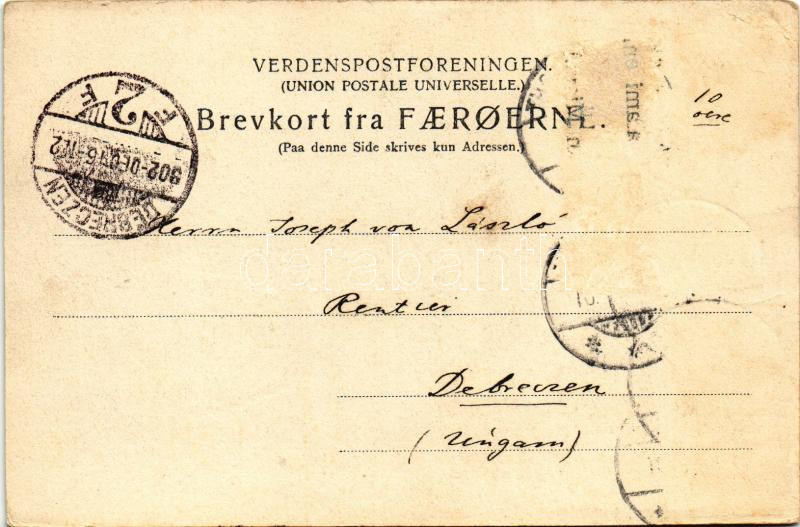 VERDENSPOSTFORENINGEN.
(UNION POSTALE UNIVERSELLE.)
Brevkort fra FÆRØERNE.
(Paa denne Side skrives kun Adressen.)
10
øre
F 2 F
902-DEC.16-N.2
DEBRECZEN
Herrn Joseph von László
Rentier
Debreczen
(Ungarn)
darabanth